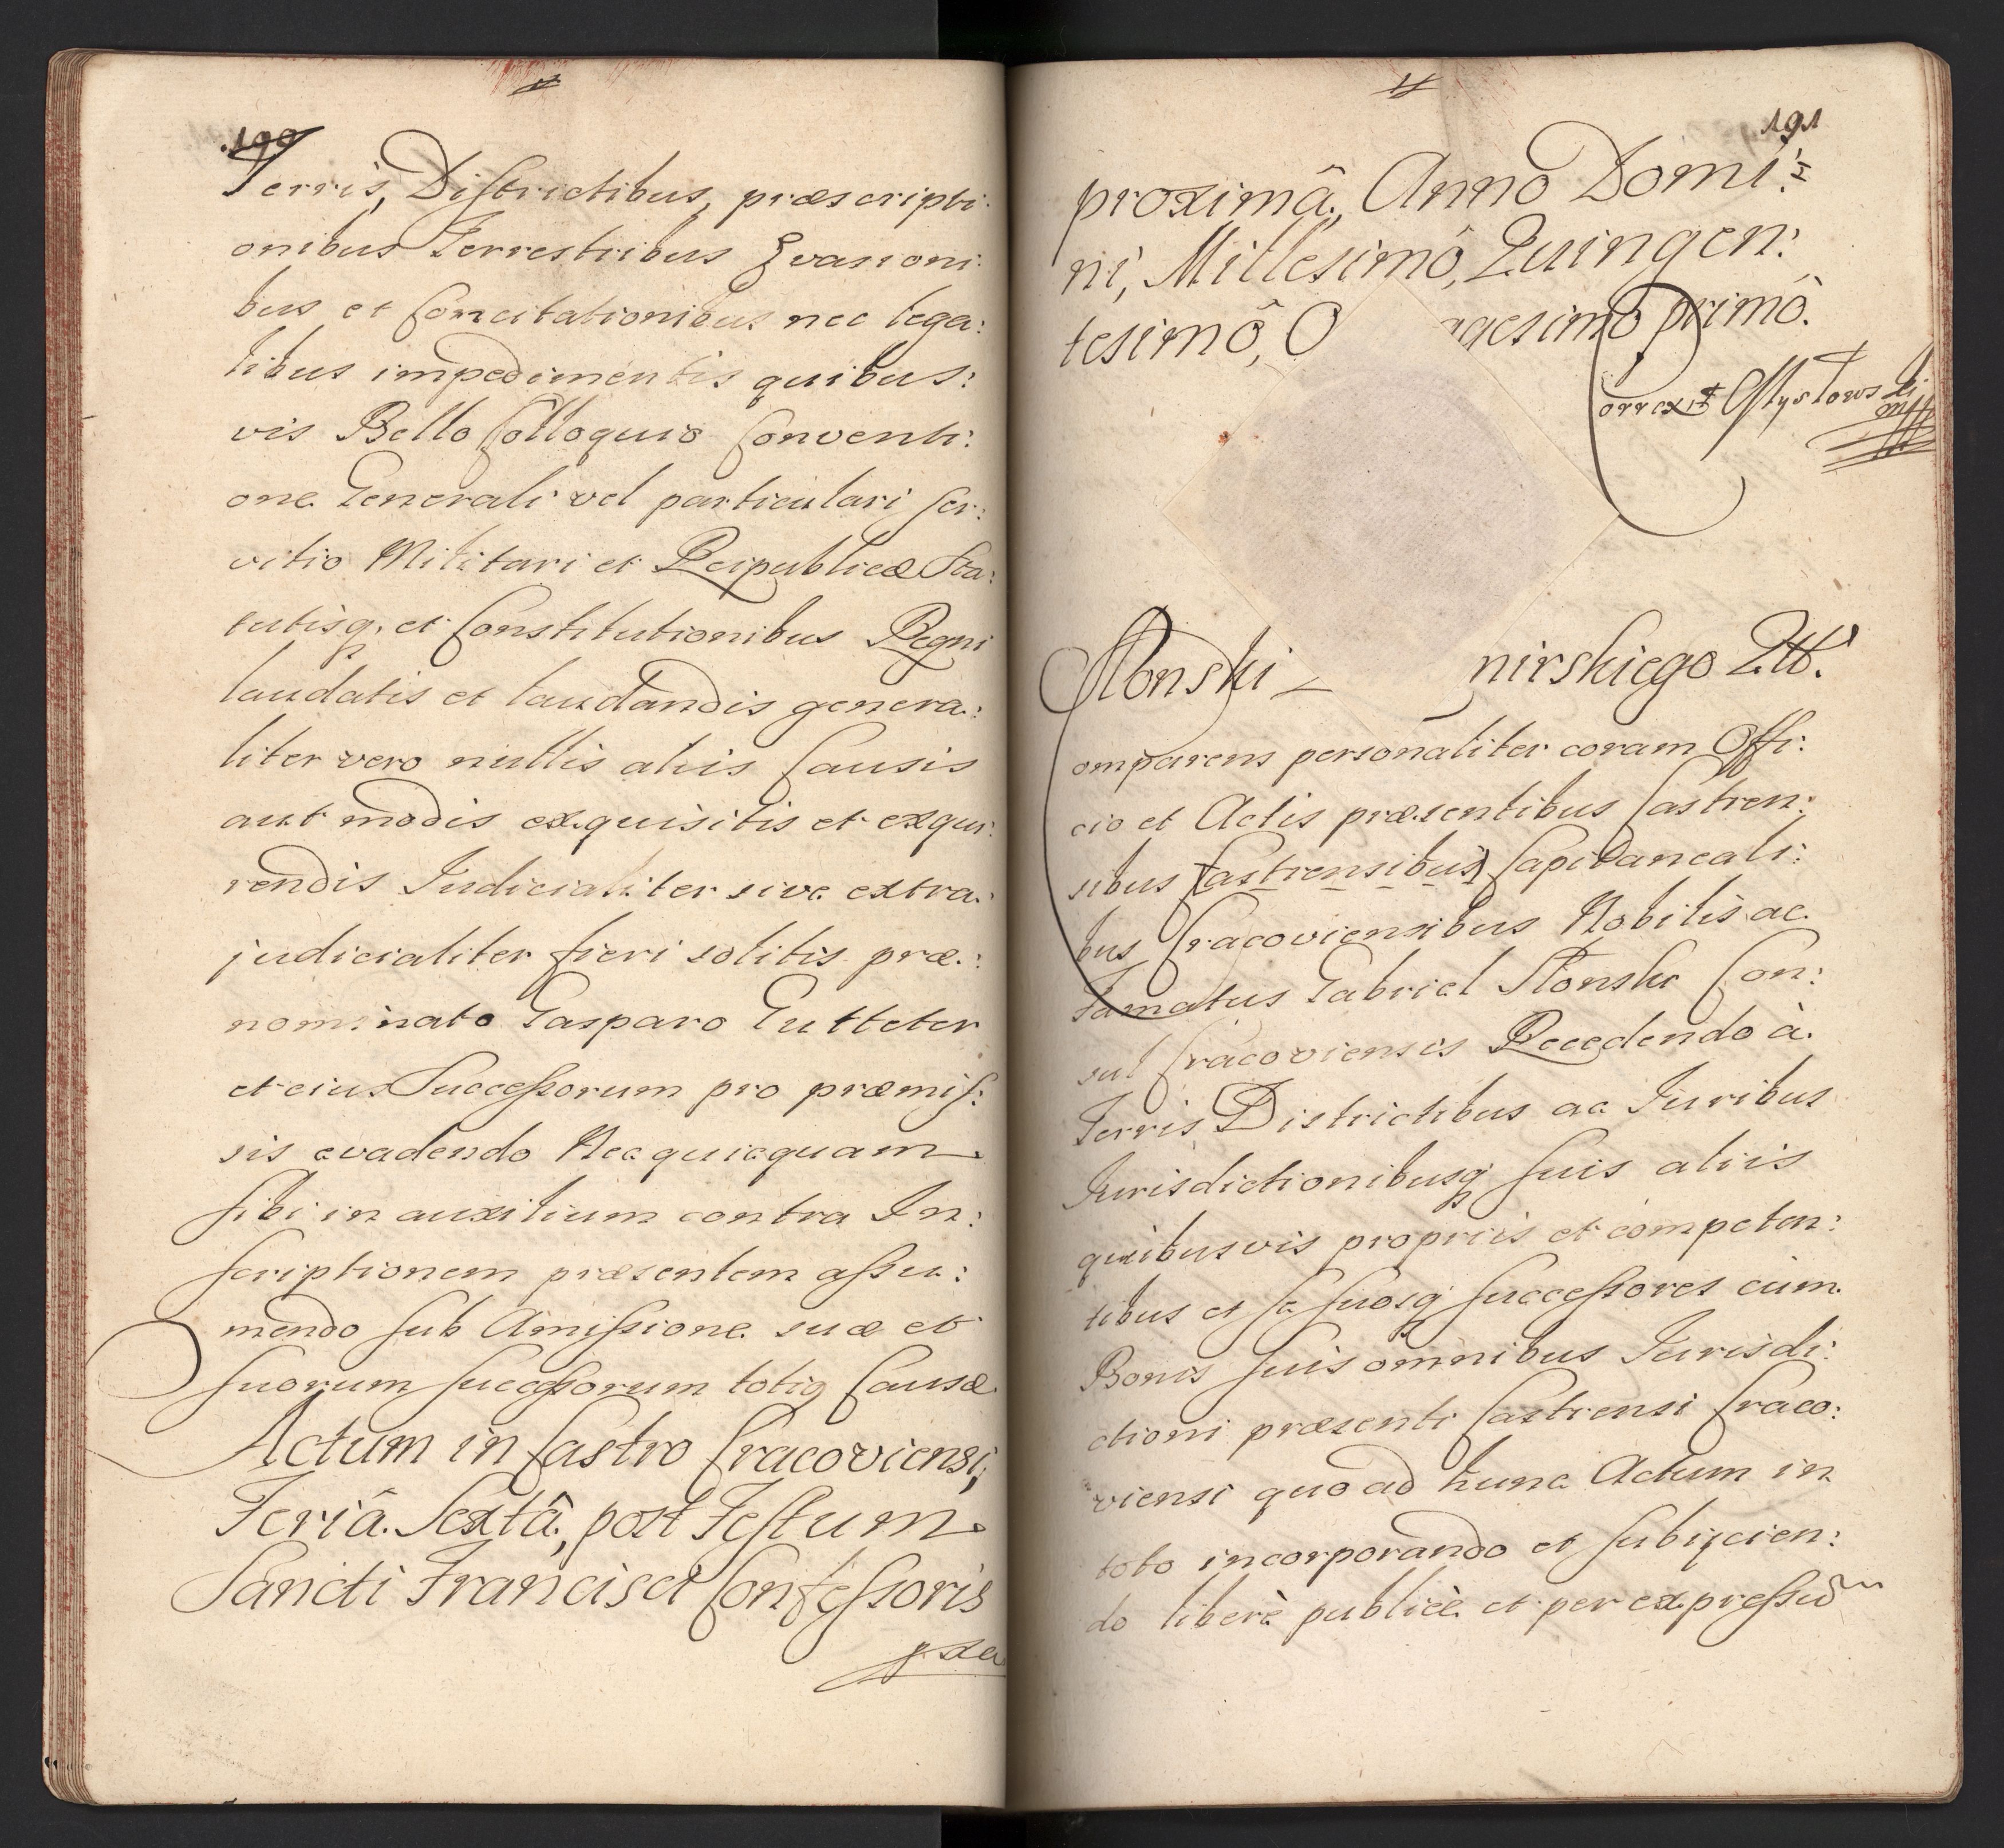 190
Terris, Districtibus, præscripti:
onibus Terrestribus Evasioni:
bus et Concitationibus nec lega:
libus impedimentis quibus:
vis Bello Colloquio Conventi:
one Generali vel particulari ser:
vitio Militari et Reipublicæ Sta:
tutisq. et Constitutionibus Regni
laudatis et laudandis genera:
liter vero nullis aliis Causis
aut modis exquisitis et exqui:
rendis Iudicialiter sive extra:
judicialiter fieri solitis præ:
nominato Gasparo Gutteter
et eius Successorum pro præmis:
sis evadendo Nec quicquam
sibi in auxilium contra In:
scriptionem præsentem assu:
mendo sub Amissione suæ et
suorum successorum totiq Causæ
Actum in Castro Cracoviensi,
Feriâ Sextâ, post Festum
Sancti Francisci Confessoris
191
proximâ, Annô Domi:
ni, Millesimô, Quingen:
tesimô, O gesimô primô.
Correxit
Słonski nirskiego Qtt.
Comparens personaliter coram Offi:
cio et Actis præsentibus Castren:
sibus (Castrensibus) Capitaneali:
bus Cracoviensibus Nobilis ac
Famatus Gabriel Słonski Con:
sul Cracoviensis Recedendo à
Terris Districtibus ac Iuribus
Iurisdictionibusq suis aliis
quibusvis propriis et competen:
tibus et se suosq successores cum
Bonis suis omnibus Iurisdi:
ctioni præsenti Castrensi Craco:
viensi quo ad hunc Actum in
toto incorporando et subiicien:
do liberè publicè et per expressum